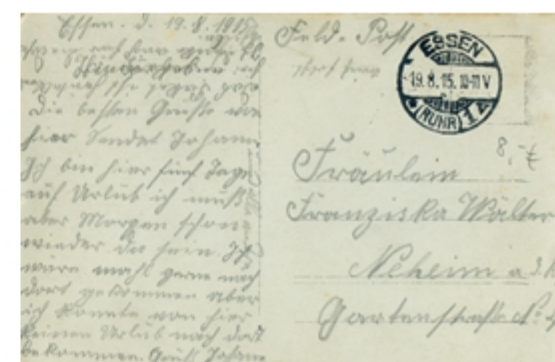 Essen. d. 19.8.1915
Die besten Grüße von
hier sendet Johann
Ich bin hier fünf Tage
auf Urlub ich muß
aber Morgen schon
wieder da sein. Ich
wäre mahl gerne nach
dort gekommen aber
ich konnte von hier
keinen Urlub nach dort
bekommen. Gruß Johann
Feld-Post
ESSEN
19.8.15.10-11V
(RUHR) 1
8,-
Fräulein
Franziska Wälter
Neheim a. d.
Gartenstraße No